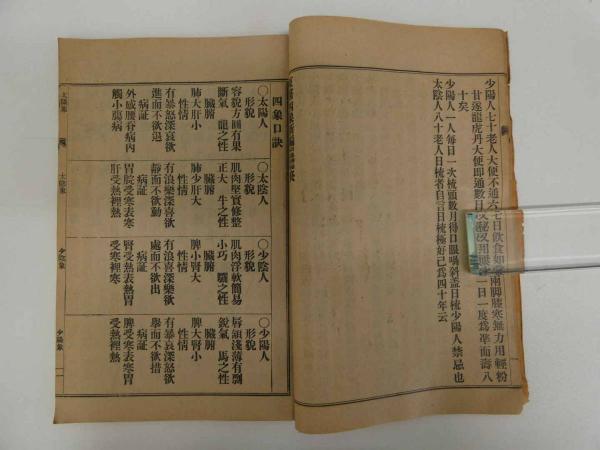 少陽人七十老人大便不通六七日飲食如常兩脚膝寒無力用輕粉
甘遂龍虎丹大便即通數日後 秘又用 一日一度爲準而壽八
十矣
少陽人一人每日一次梳頭數月得口眼喎斜盖日梳少陽人禁忌也
太陰人八十老人日梳者自言日梳極好己爲四十年云
四象口訣
○太陽人
形貌
容貌方圓有果
斷氣 龍之性
臟腑
肺大肝小
性情
有暴怒深哀欲
進而不欲退
病証
外感腰脊病內
觸小腸病
○太陰人
形貌
肌肉堅實修整
正大 牛之性
臟腑
肺少肝大
性情
有浪樂深喜欲
靜而不欲動
病証
胃脘受寒表寒
肝受熱裡熱
○少陰人
形貌
肌肉浮軟簡易
小巧 驢之性
臟腑
脾小腎大
性情
有浪喜深樂欲
處而不欲出
病証
腎受熱表熱胃
受寒裡寒
○少陽人
形貌
唇頷淺薄有剽
銳氣 馬之性
臟腑
脾大腎小
性情
有暴哀深怒欲
擧而不欲措
病証
脾受寒表寒胃
受熱裡熱
太陽象
太陰象
少陰象
少陽象